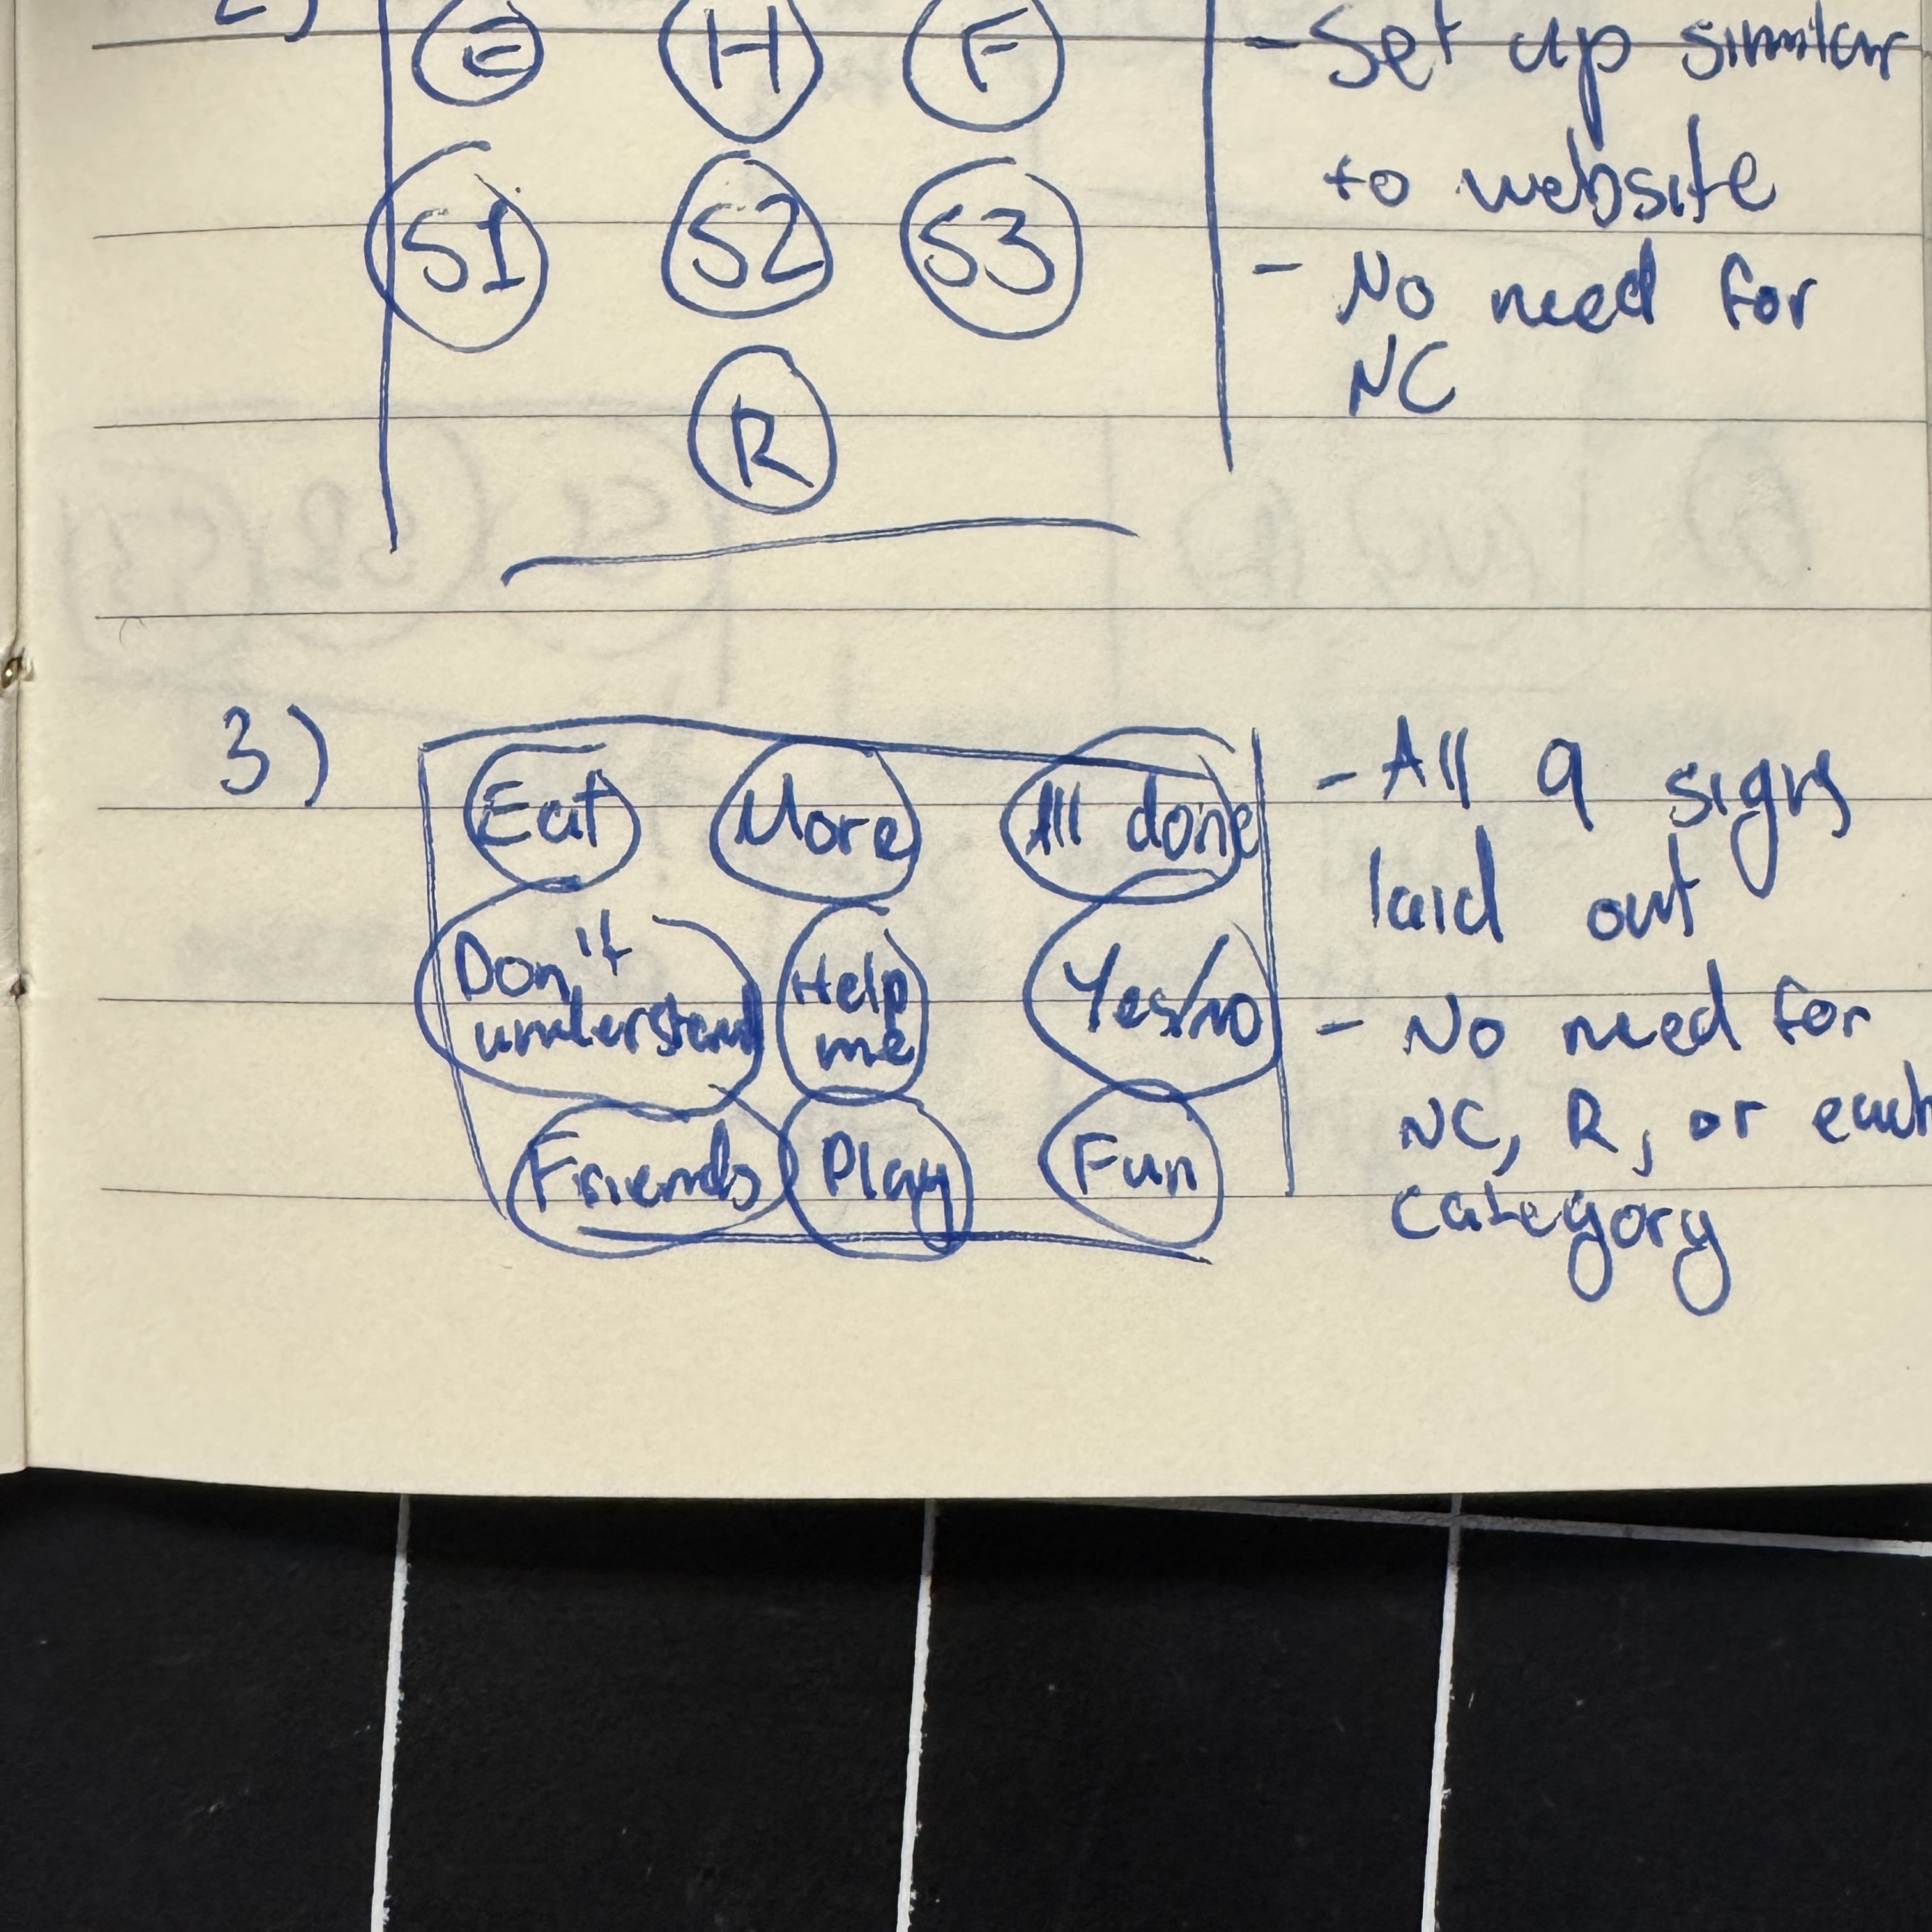 2)
E H F
- Set up similar
to website
S1 S2 S3
- No need for
NC
R
3)
Eat More All done
- All 9 signs
laid out
Don't
understand
Help
me
Yes/no
- No need for
NC, R, or each
category
Friends Play Fun